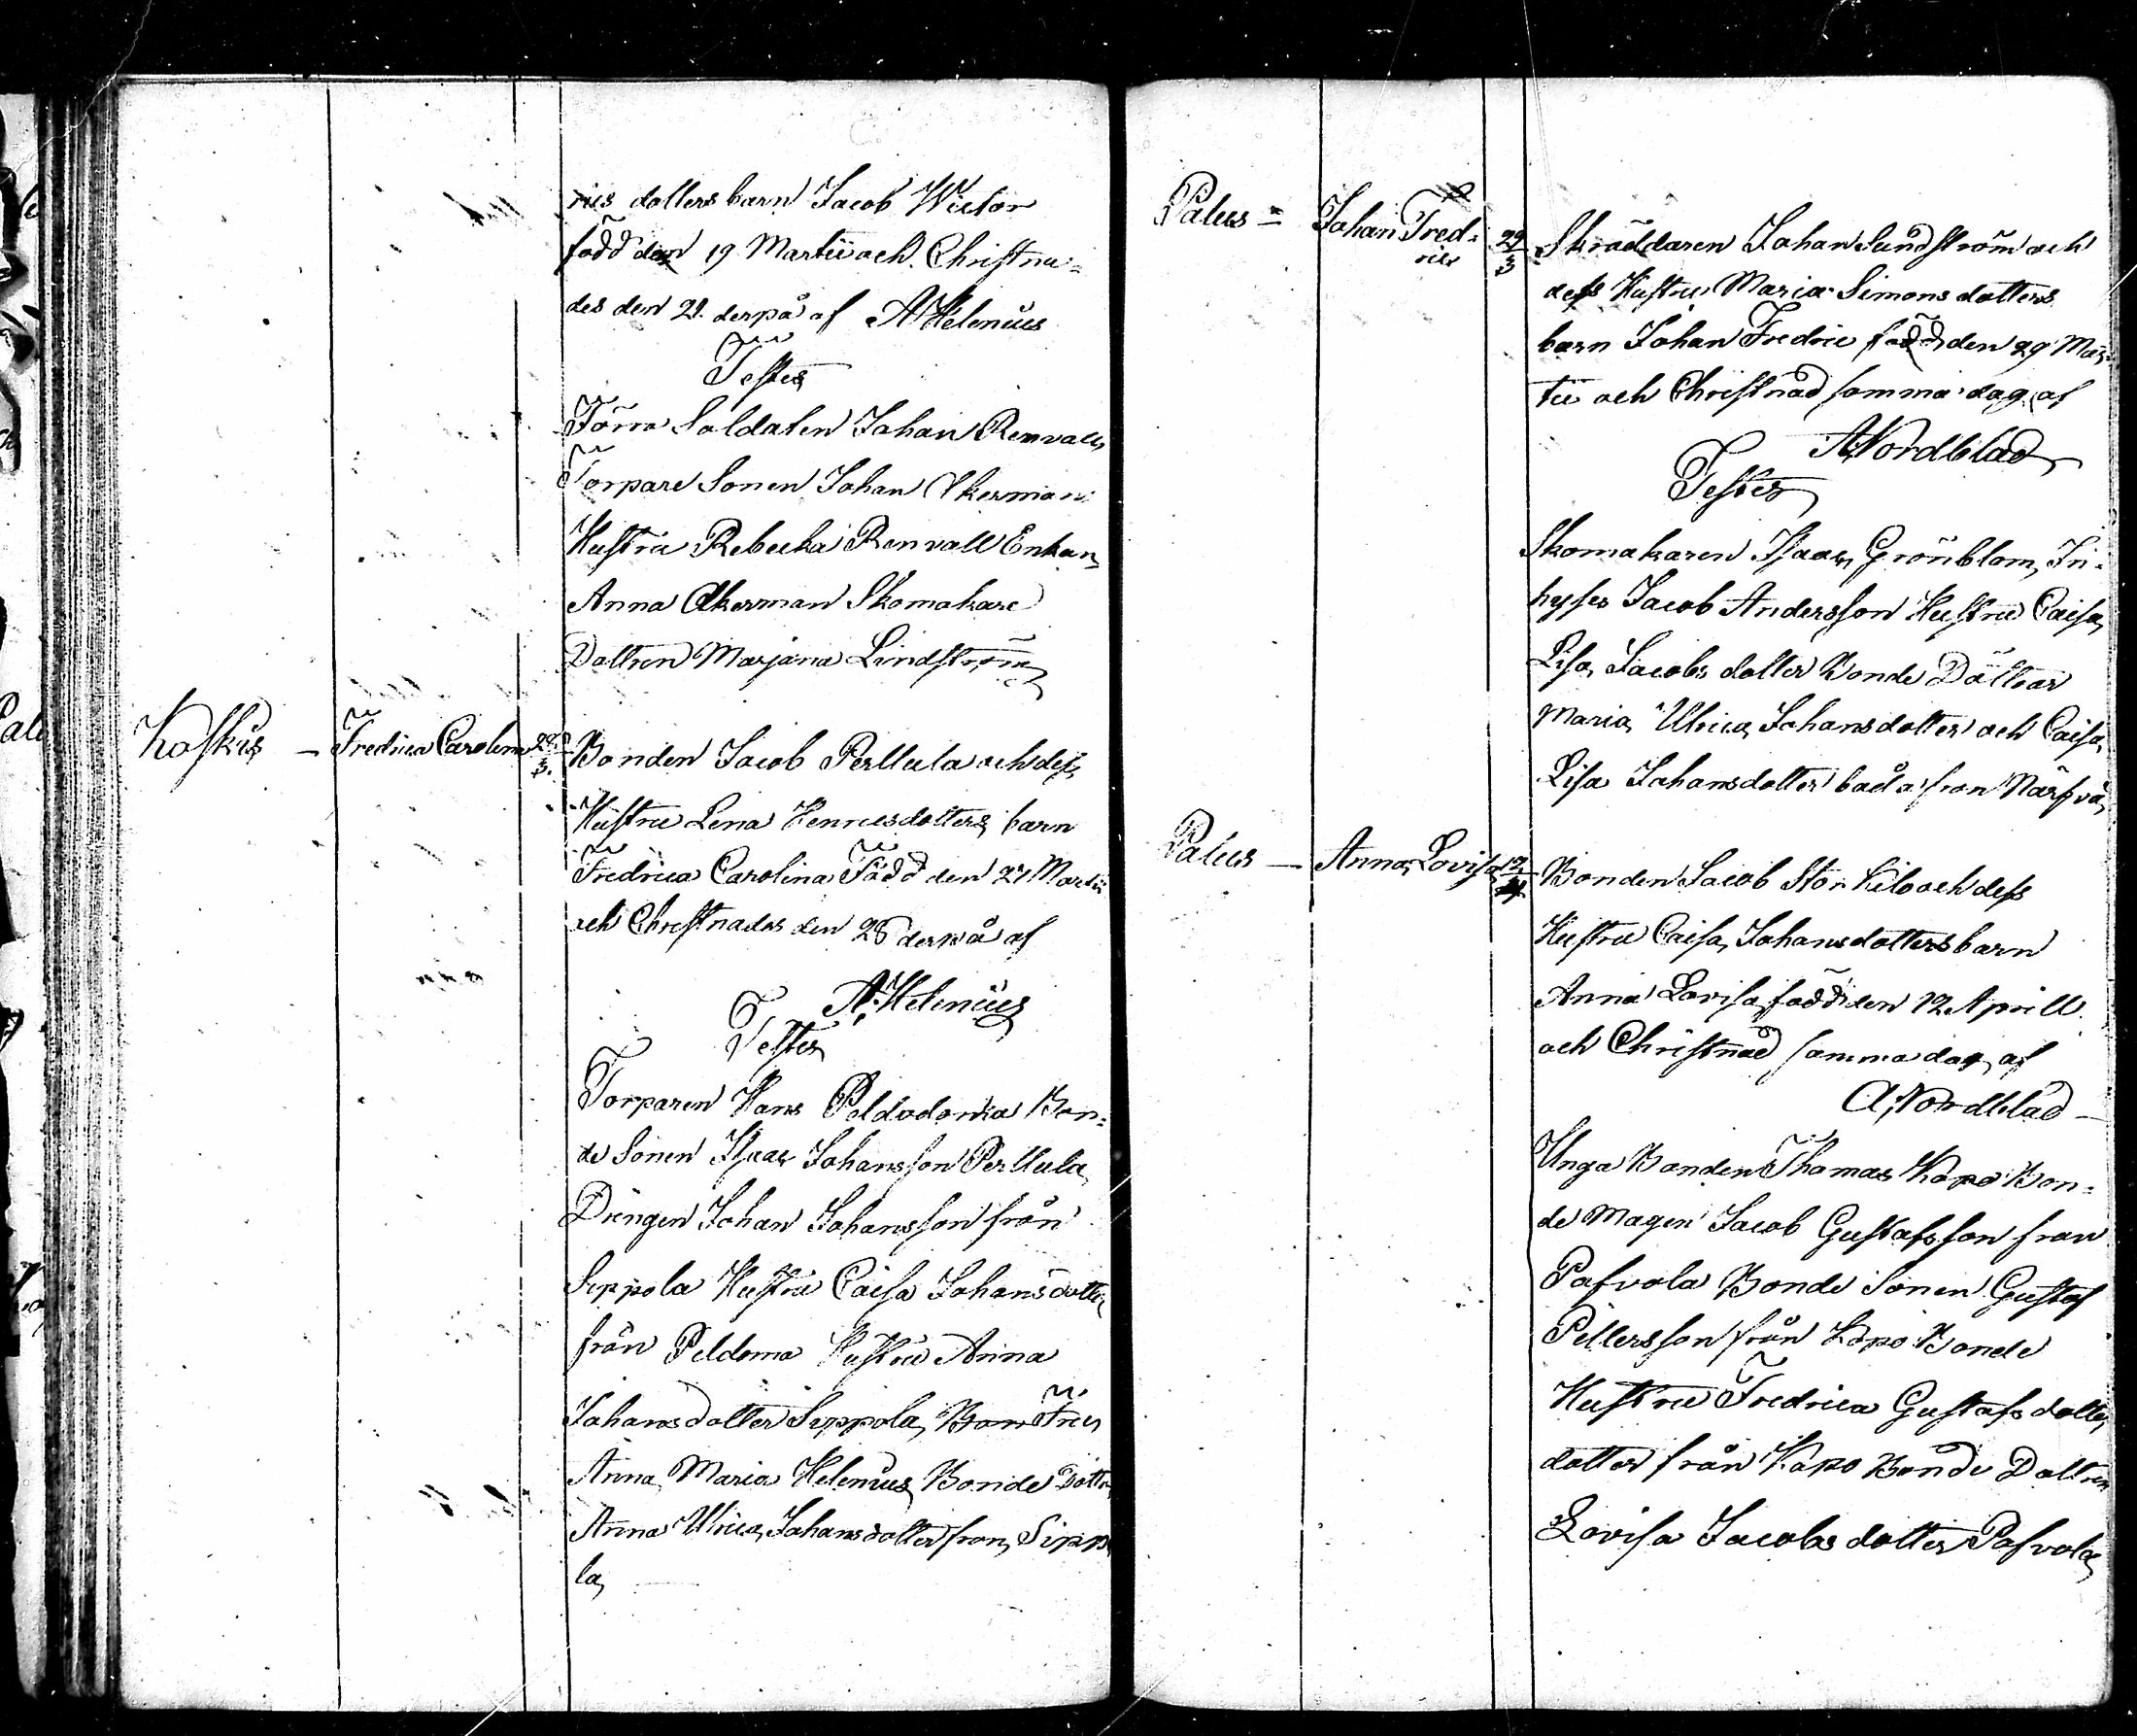 rics dotters barn Jacob Wictor
född den 19 Martii och Christna-
des den 21. derpå af A Helenius
Testes
Förra Soldaten Johan Renvall
Torpare Sonen Johan Åkerman
Hustru Rebecka Renvall Enkan
Anna Åkerman Skomakare
Dottren Marjana Lindström
Koskis — Fredrica Carolina 27/3. Bonden Jacob Perllula och dess
Hustru Lena Henricsdotters barn
Fredrica Carolina Född den 27 Martii
och Christnades den 28 derpå af
A. Helenius
Testes
Torparen Hans Bon-
de Sonen Isaac Johansson Perllula
Drängen Johan Johansson från
Seppola Hustru Caisa Johansdotter
från Peldoma Hustru Anna
Johansdotter Seppola,
Anna Maria Helenius Bonde Dottren
Anna Ulrica Johansdotter fron Sippo
la,
Palus = Johan Fred- 29/3 Skräddaren Johan Sundström och
ric
dess Hustru Maria Simons dotters
barn Johan Fredric född den 29 Mar-
tii och Christnad samma dag af
A Nordblad
Testes
Skomakaren Isaac Grönblom, In-
hyses Jacob Andersson Hustru Caisa
Lisa Jacobs dotter Bonde Döttrar
Maria Ulrica Johansdotter och Caisa
Lisa Johansdotter båda fron Närfvä
Palus — Anna Lovisa 12/4 Bonden Jacob Stor Kilo och dess
Hustru Caisa Johansdotters barn
Anna Lovisa född den 12 Aprill
och Christnad samma dag af
A Nordblad —
Unga Bonden Thomas Kapo Bon-
de Magen Jacob Gustafsson fran
Pafvola Bonde Sonen Gustaf
Pettersson från Kapo Bonde
Hustru Fredrica Gustafs dotter
dotter från Kapo Bonde Dottren
Lovisa Jacobs dotter Pafvola